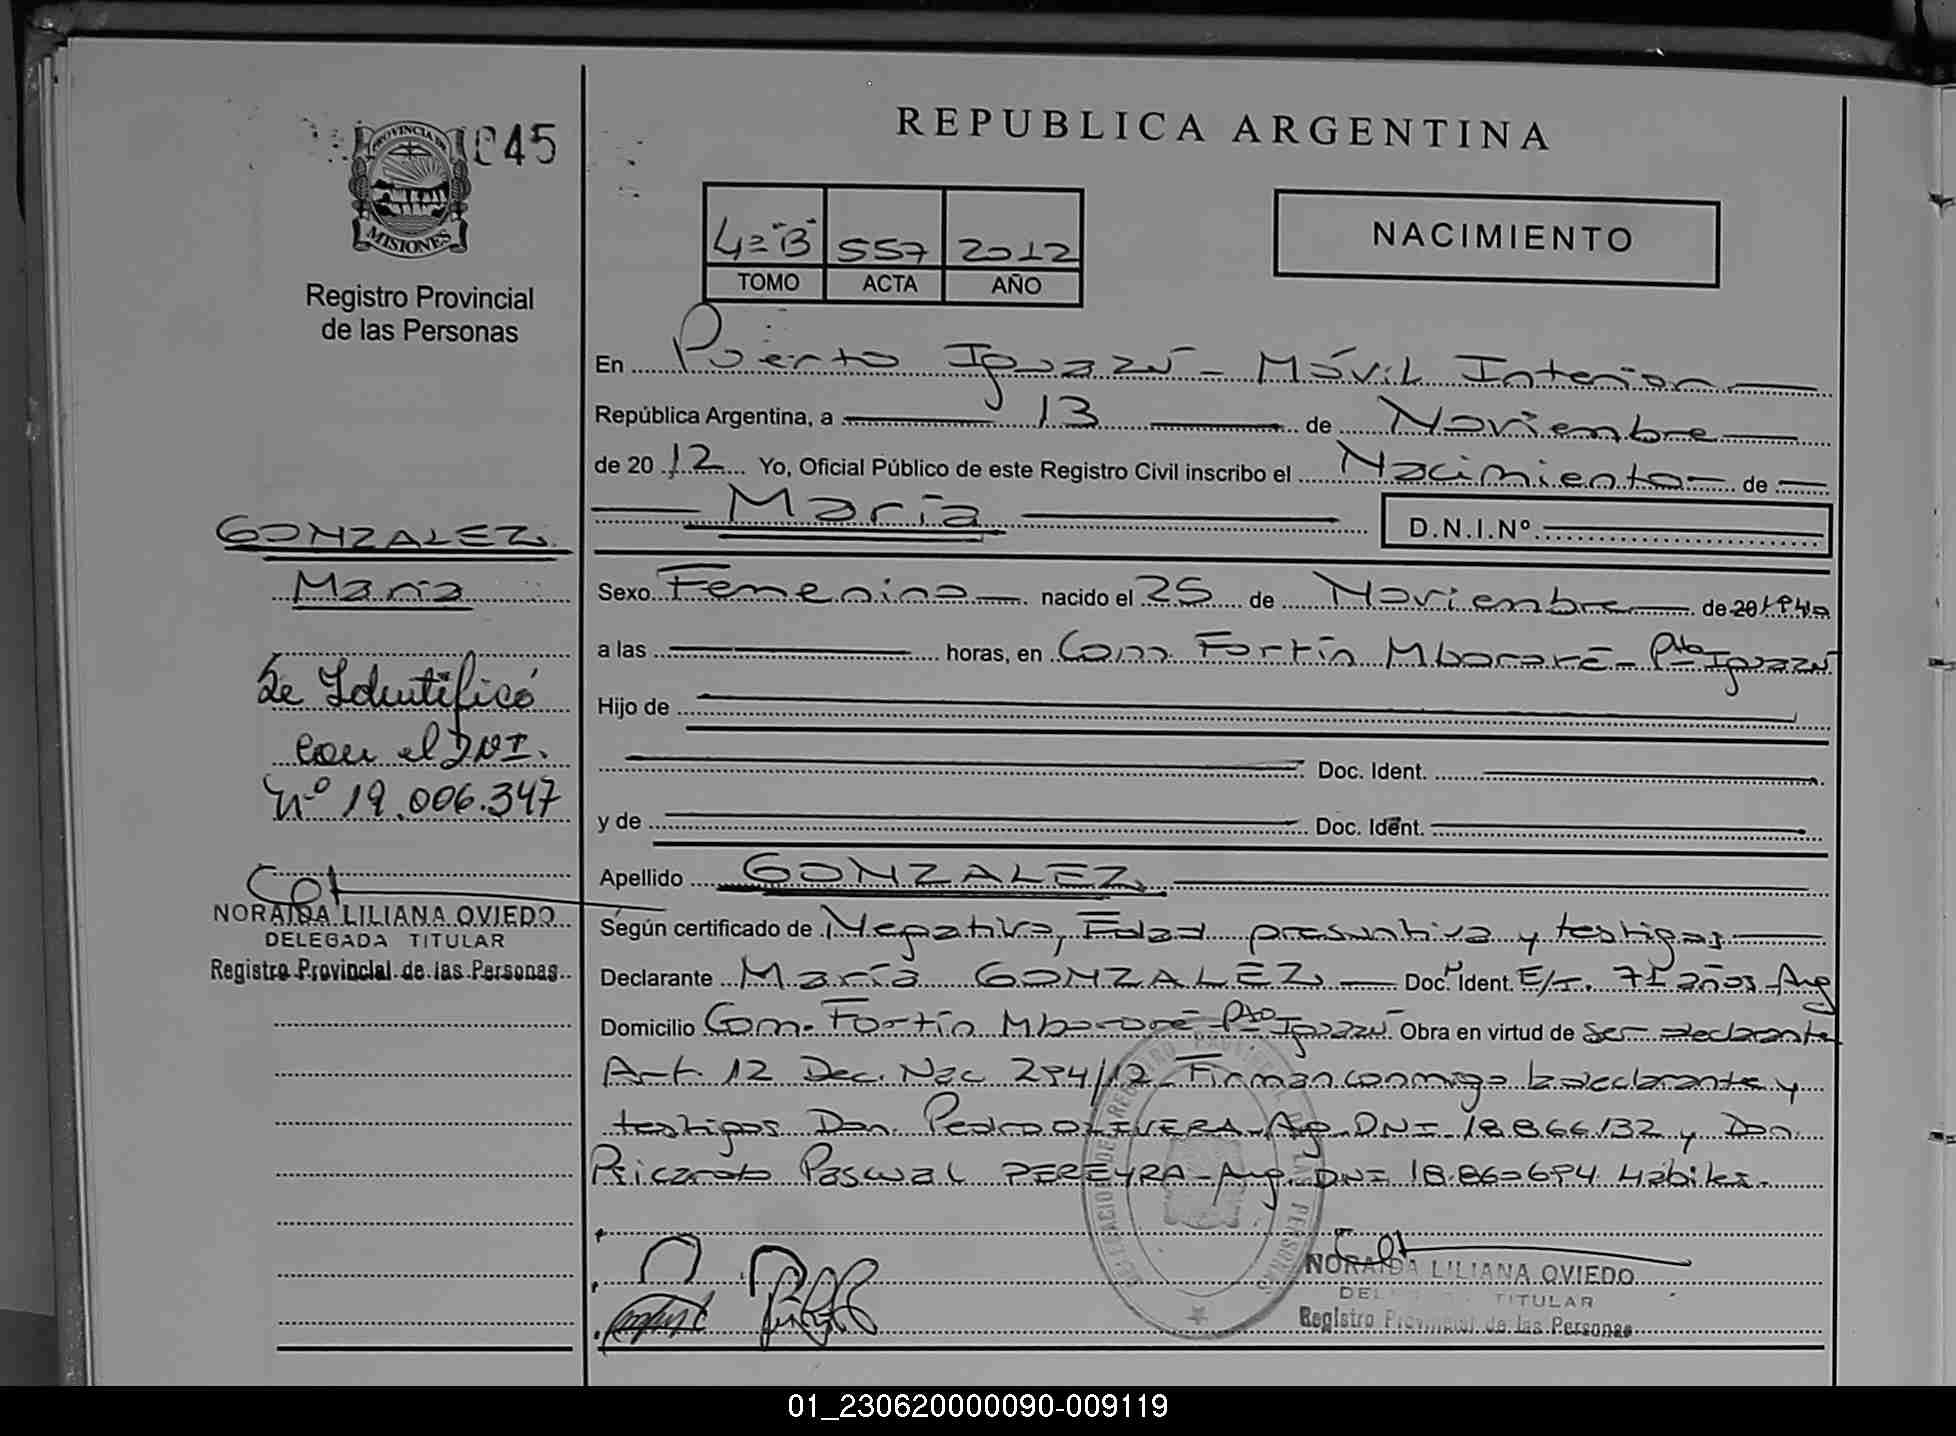 REPUBLICA ARGENTINA
045
PROVINCIA DE
MISIONES
Registro Provincial
de las Personas
4º "B" 557 2012
TOMO ACTA AÑO
NACIMIENTO
En Puerto Iguazú - Móvil Interior
República Argentina, a 13 de Noviembre
de 2012 Yo, Oficial Público de este Registro Civil inscribo el Nacimiento de
María
D.N.I.Nº
GONZALEZ
María
Se Identificó
con el DNI.
Nº 19.006.347
NORAIDA LILIANA OVIEDO
DELEGADA TITULAR
Registro Provincial de las Personas
Sexo Femenino nacido el 25 de Noviembre de 20
a las horas, en Com. Fortín Mbororé - Pto Iguazú
Hijo de
Doc. Ident.
y de Doc. Ident.
Apellido GONZALEZ
Según certificado de Negativa, Edad presuntiva y testigos
Declarante María GONZALEZ Doc. Ident. E/T. 71 años Arg
Domicilio Com. Fortín Mbororé - Pto Iguazú Obra en virtud de ser declarante
Art. 12 Dec. Nac 294/12 - Firman conmigo la declarante y
testigos Don. Pedro OLIVERA - Arg. DNI - 18.866132 y Don.
Ricardo Pascual PEREYRA - Arg. DNI 18.860694 Hábiles.
DELEGACION DE REGISTRO PROVINCIAL DE LAS PERSONAS
NORAIDA LILIANA OVIEDO
DELEGADA TITULAR
Registro Provincial de las Personas
01_230620000090-009119